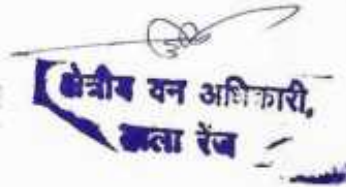 क्षेत्रीय वन अधिकारी,
रेंज